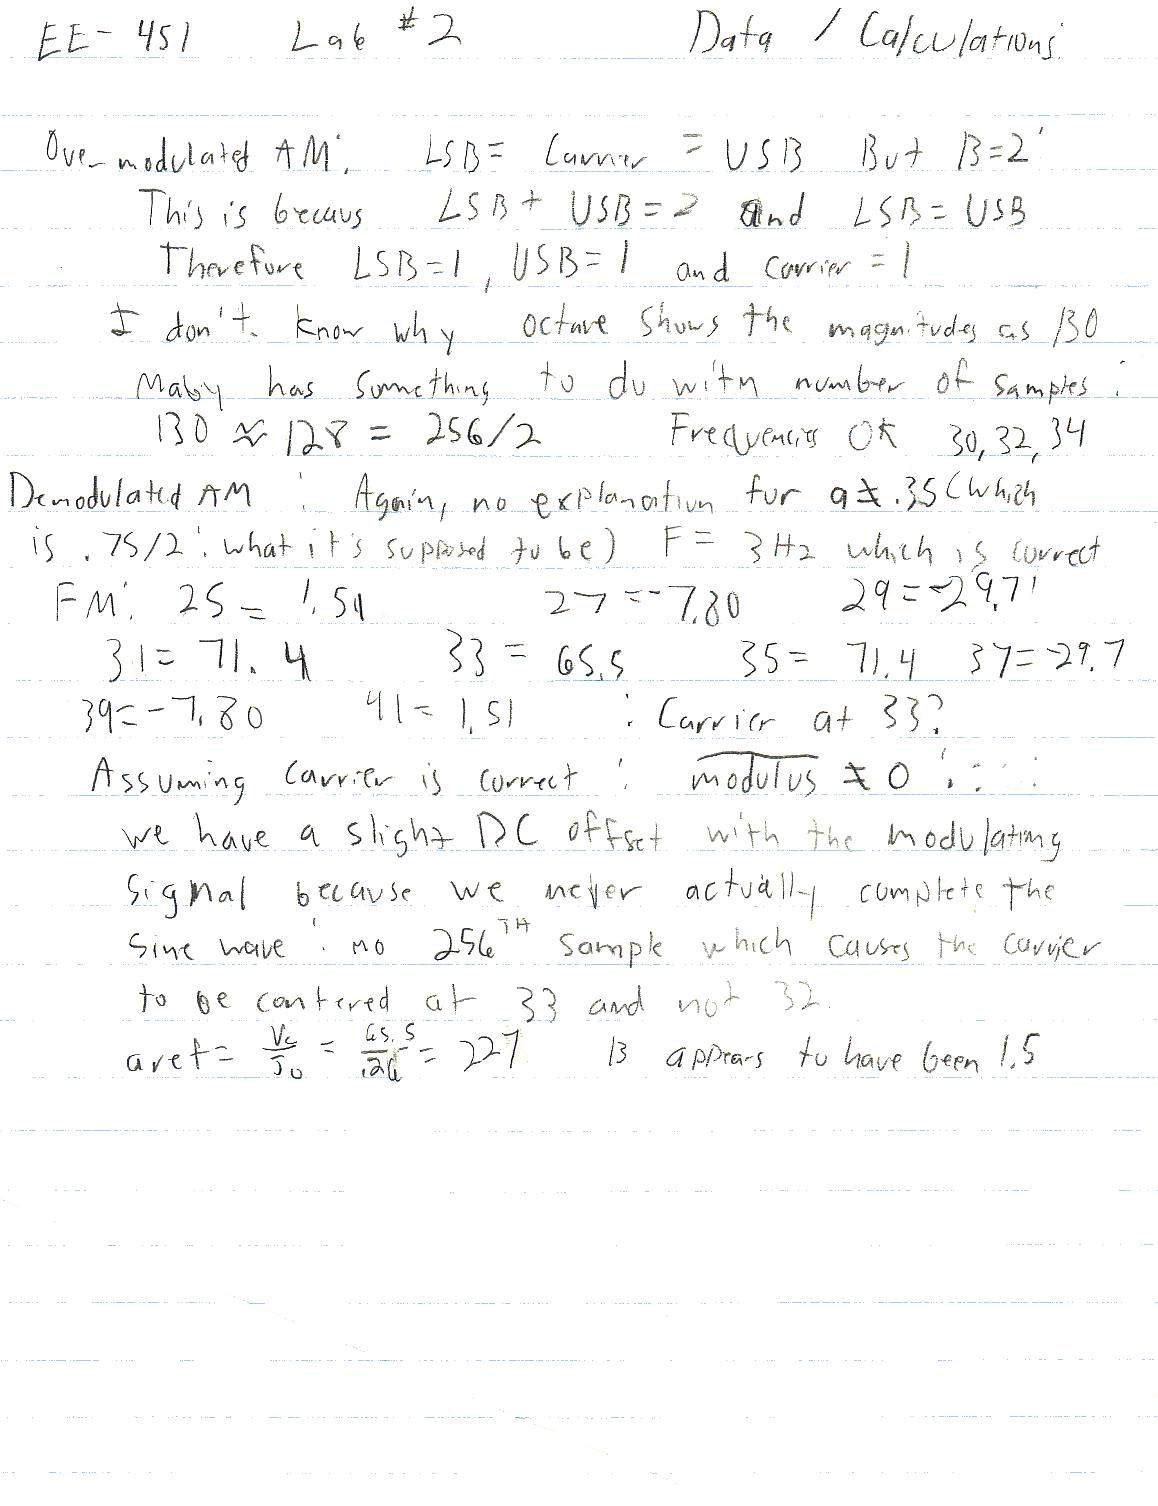 EE-451 Lab #2 Data / Calculations
Over modulated AM: LSB = Carrier = USB But B=2
This is becaus LSB + USB = 2 and LSB = USB
Therefore LSB=1, USB=1 and carrier = 1
I don't know why octave shows the magnitudes as 130
Maby has something to do with number of samples :
130 ≈ 128 = 256/2 Frequencies OK 30, 32, 34
Demodulated AM : Again, no explanation for a ≠ .35 (which
is .75/2 : what it's supposed to be) F = 3Hz which is correct
FM: 25 = 1.51 27 = -7.80 29 = -29.7
31 = 71.4 33 = 65.5 35 = 71.4 37 = -29.7
39 = -7.80 41 = 1.51 : Carrier at 33?
Assuming carrier is correct : modulus ≠ 0 :
we have a slight DC offset with the modulating
signal because we never actually complete the
sine wave : no 256TH sample which causes the carrier
to be centered at 33 and not 32.
aref = Vc/J0 = 65.5/ = 227 B appears to have been 1.5